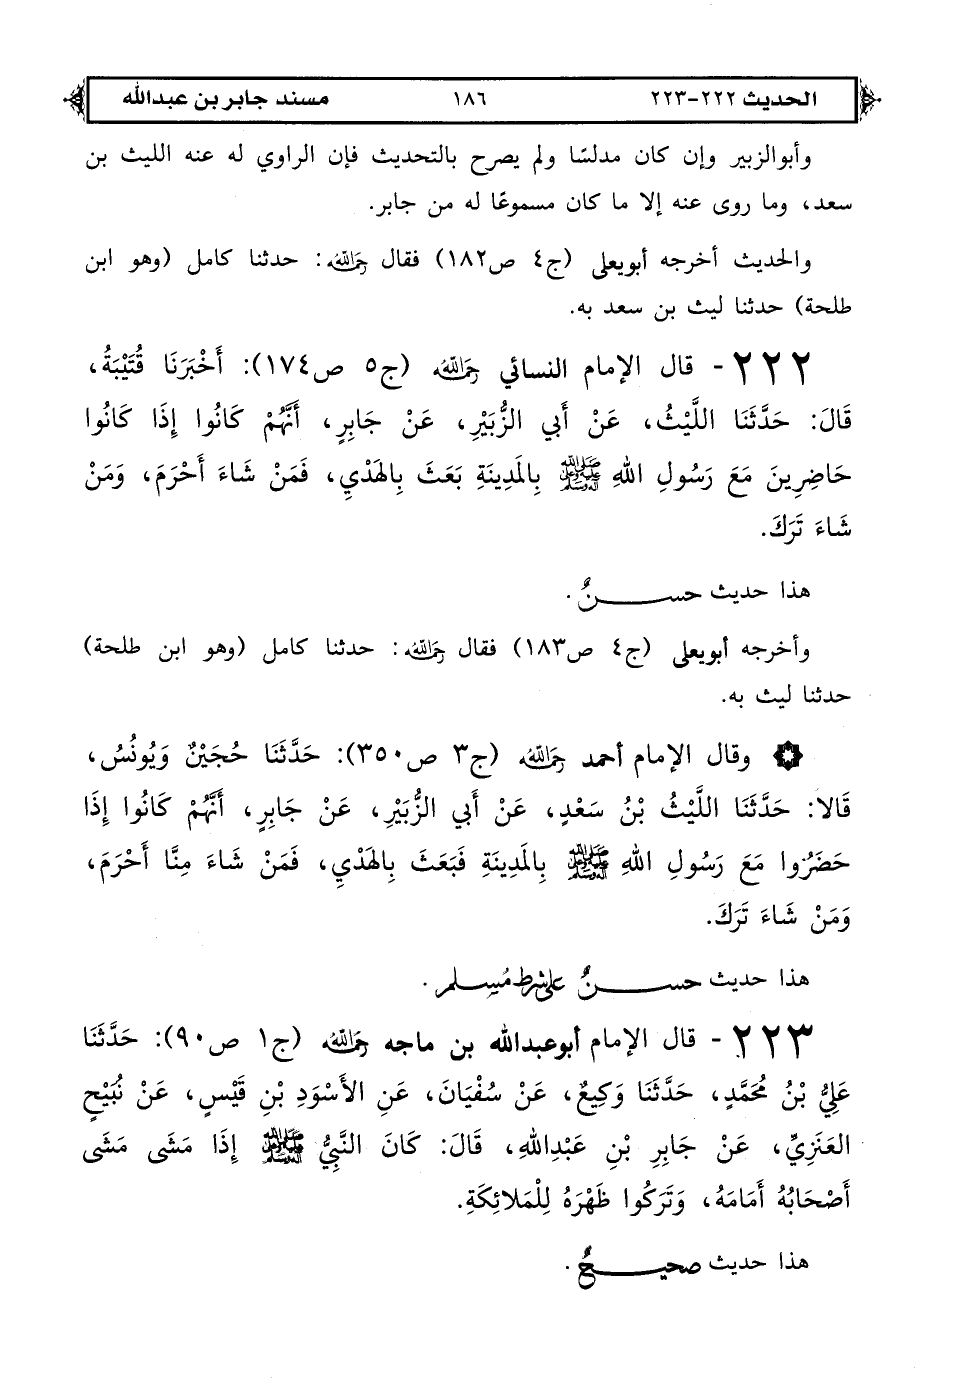 الحديث ٢٢٢-٢٢٣ ١٨٦ مسند جابر بن عبدالله
وأبوالزبير وإن كان مدلسًا ولم يصرح بالتحديث فإن الراوي له عنه الليث بن
سعد، وما روى عنه إلا ما كان مسموعًا له من جابر.
والحديث أخرجه أبويعلى (ج٤ ص١٨٢) فقال رحمه الله: حدثنا كامل (وهو ابن
طلحة) حدثنا ليث بن سعد به.
٢٢٢- قال الإمام النسائي رحمه الله (ج٥ ص١٧٤): أَخْبَرَنَا قُتَيْبَةُ،
قَالَ: حَدَّثَنَا اللَّيْثُ، عَنْ أَبِي الزُّبَيْرِ، عَنْ جَابِرٍ، أَنَّهُمْ كَانُوا إِذَا كَانُوا
حَاضِرِينَ مَعَ رَسُولِ اللهِ ﷺ بِالمَدِينَةِ بَعَثَ بِالهَدْيِ، فَمَنْ شَاءَ أَحْرَمَ، وَمَنْ
شَاءَ تَرَكَ.
هذا حديث حسنٌ.
وأخرجه أبويعلى (ج٤ ص١٨٣) فقال رحمه الله: حدثنا كامل (وهو ابن طلحة)
حدثنا ليث به.
وقال الإمام أحمد رحمه الله (ج٣ ص٣٥٠): حَدَّثَنَا حُجَيْنٌ وَيُونُسُ،
قَالا: حَدَّثَنَا اللَّيْثُ بْنُ سَعْدٍ، عَنْ أَبِي الزُّبَيْرِ، عَنْ جَابِرٍ، أَنَّهُمْ كَانُوا إِذَا
حَضَرُوا مَعَ رَسُولِ اللهِ ﷺ بِالمَدِينَةِ فَبَعَثَ بِالهَدْيِ، فَمَنْ شَاءَ مِنَّا أَحْرَمَ،
وَمَنْ شَاءَ تَرَكَ.
هذا حديث حسنٌ على شرط مُسلم.
٢٢٣- قال الإمام أبوعبدالله بن ماجه رحمه الله (ج١ ص٩٠): حَدَّثَنَا
عَلِيُّ بْنُ مُحَمَّدٍ، حَدَّثَنَا وَكِيعٌ، عَنْ سُفْيَانَ، عَنِ الأَسْوَدِ بْنِ قَيْسٍ، عَنْ نُبَيْحٍ
العَنَزِيِّ، عَنْ جَابِرِ بْنِ عَبْدِاللهِ، قَالَ: كَانَ النَّبِيُّ ﷺ إِذَا مَشَى مَشَى
أَصْحَابُهُ أَمَامَهُ، وَتَرَكُوا ظَهْرَهُ لِلْمَلائِكَةِ.
هذا حديث صحيحٌ.